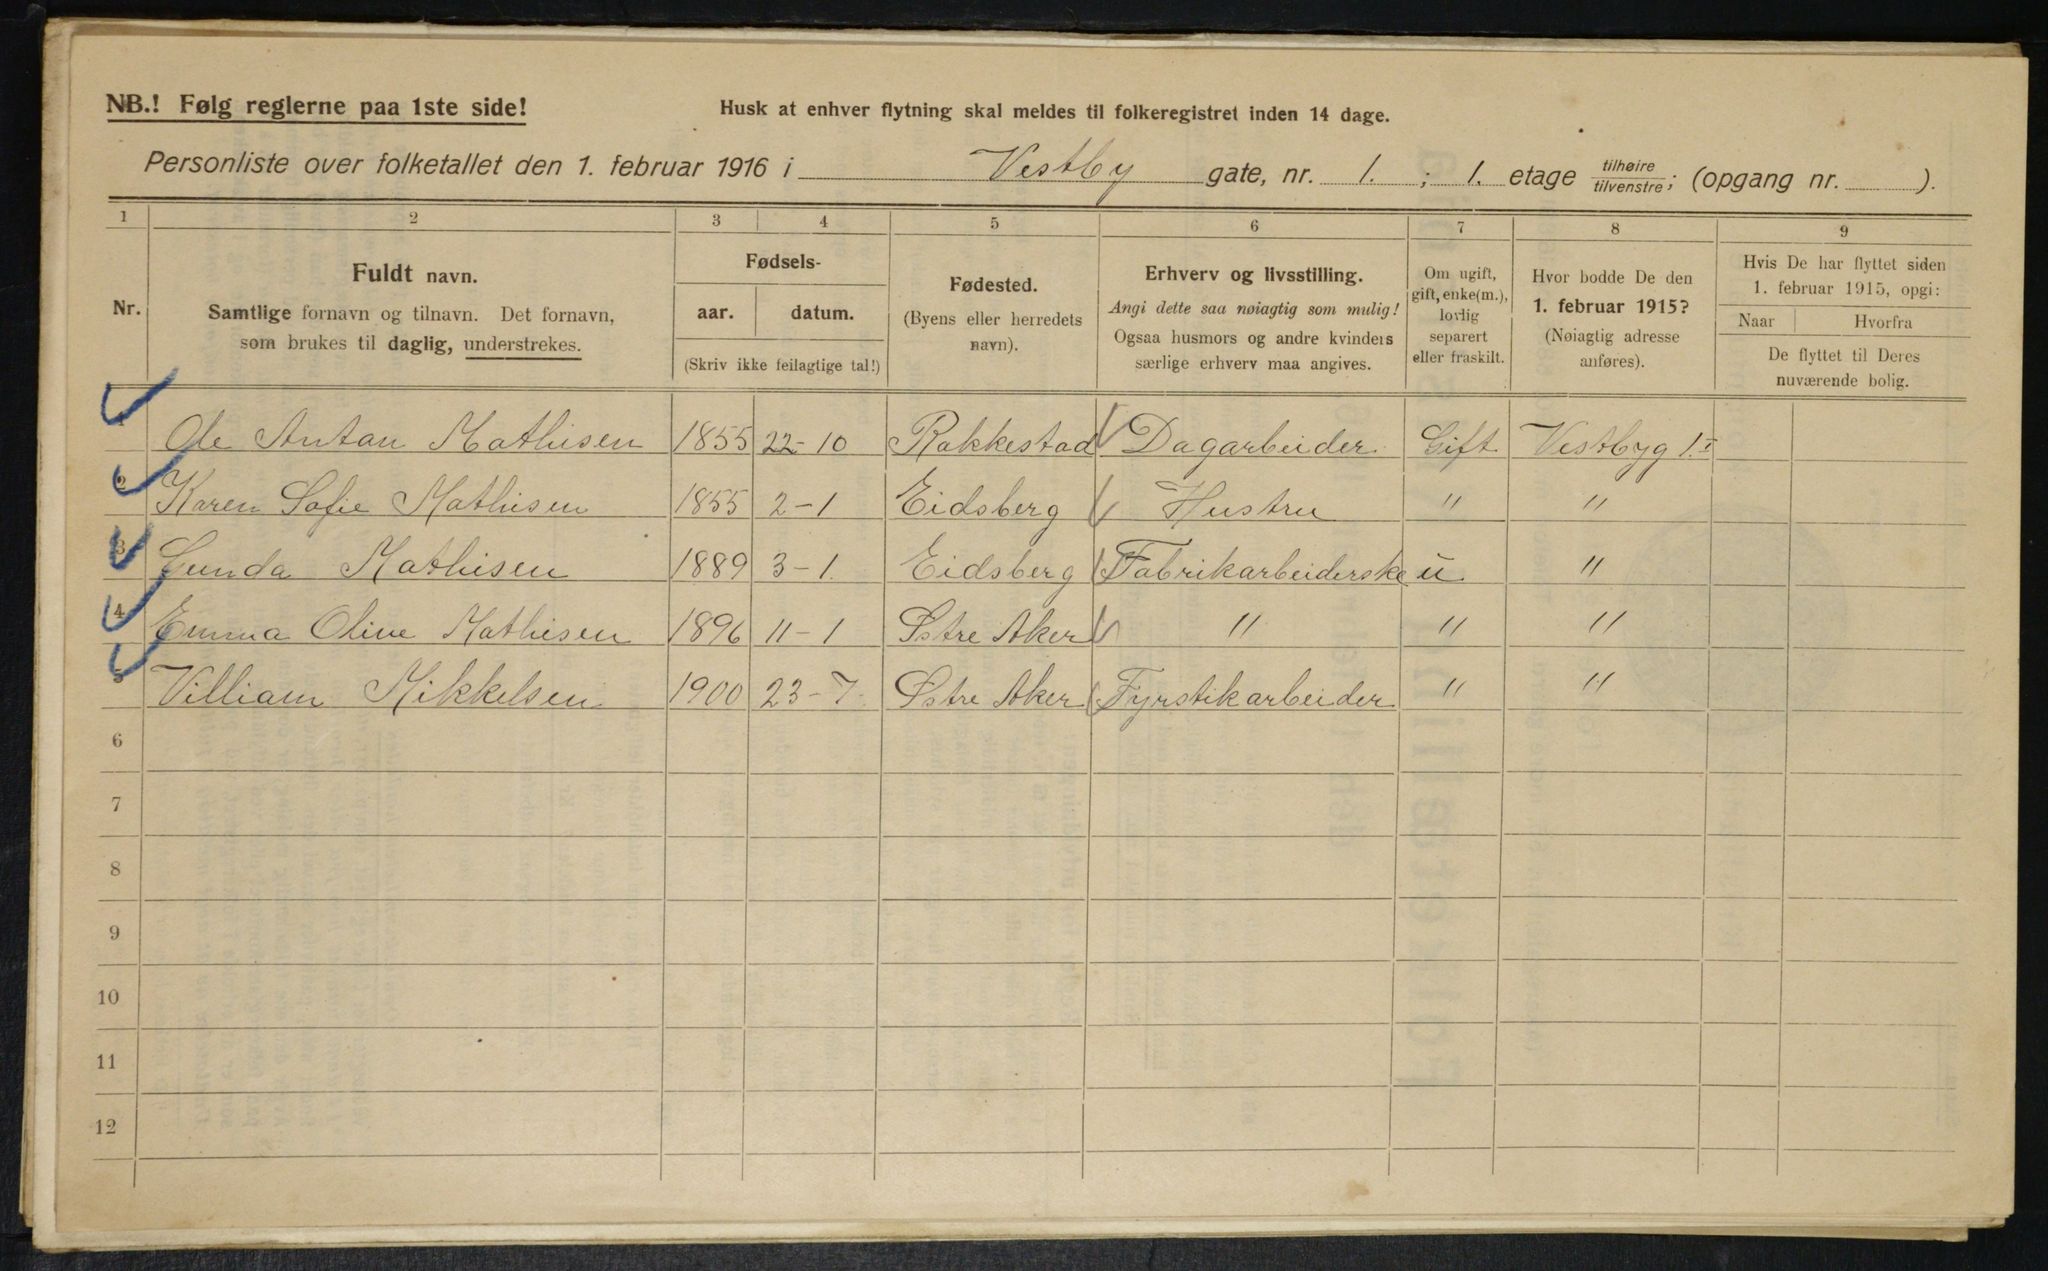 NB.! Følg reglerne paa 1ste side!
Husk at enhver flytning skal meldes til folkeregistret inden 14 dage.
Personliste over folketallet den 1. februar 1916 i Vestby gate, nr. 1. ; 1. etage tilhøire/tilvenstre; (opgang nr. ).
1 2 3 4 5 6 7 8 9
Nr.
Fuldt navn.
Samtlige fornavn og tilnavn. Det fornavn,
som brukes til daglig, understrekes.
Fødsels-
aar. datum.
(Skriv ikke feilagtige tal!)
Fødested.
(Byens eller herredets
navn).
Erhverv og livsstilling.
Angi dette saa nøiagtig som mulig!
Ogsaa husmors og andre kvinders
særlige erhverv maa angives.
Om ugift,
gift, enke(m.),
lovlig
separert
eller fraskilt.
Hvor bodde De den
1. februar 1915?
(Nøiagtig adresse
anføres).
Hvis De har flyttet siden
1. februar 1915, opgi:
Naar Hvorfra
De flyttet til Deres
nuværende bolig.
1 Ole Antan Mathisen 1855 22-10 Rakkestad Dagarbeider Gift Vestbyg 1. I
2 Karen Sofie Mathisen 1855 2-1 Eidsberg Hustru " "
3 Gunda Mathisen 1889 3-1. Eidsberg Fabrikarbeiderske u "
4 Emma Olive Mathisen 1896 11-1 Østre Aker " " "
5 Villiam Mikkelsen 1900 23-7. Østre Aker Fyrstikarbeider " "
6
7
8
9
10
11
12